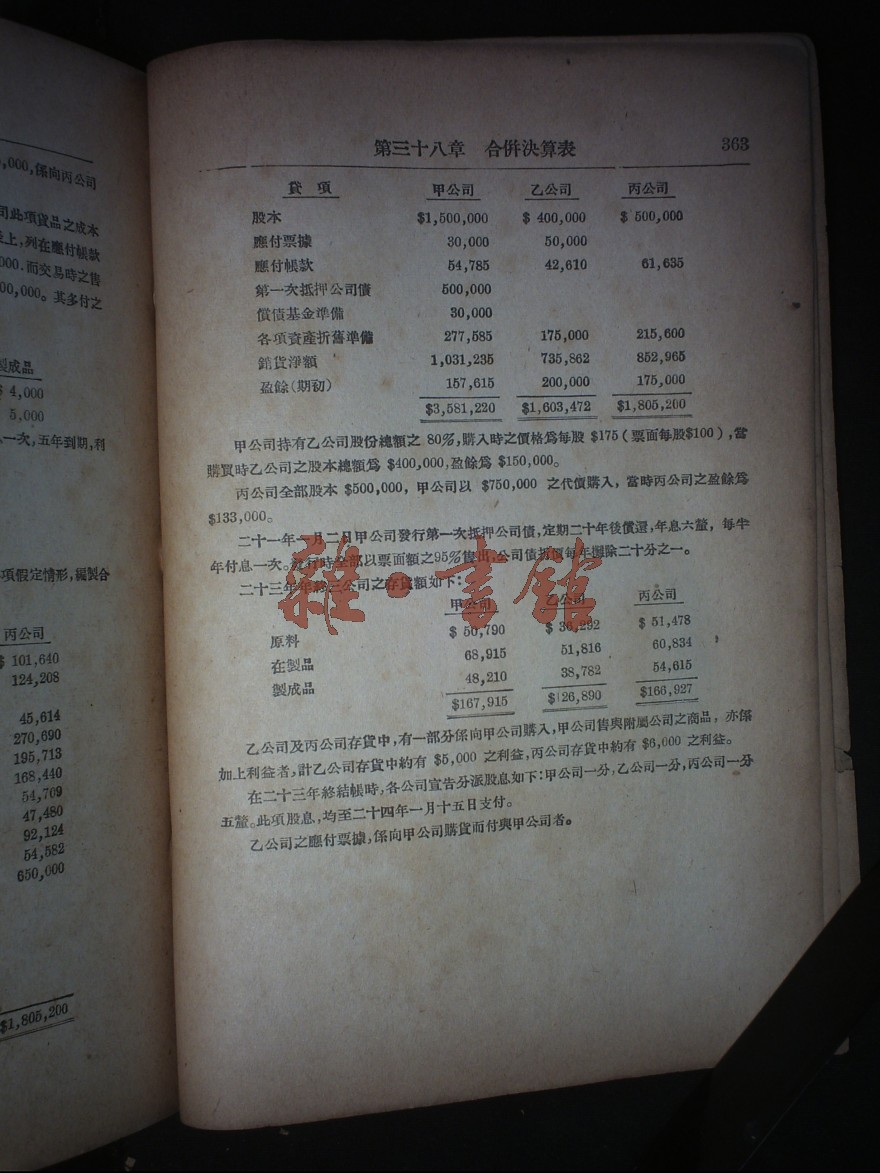 ,000,係向丙公司
司此項貨品之成本
上,列在應付帳款
000.而交易時之售
00,000。其多付之
製成品
$ 4,000
5,000
一次,五年到期,利
項假定情形,編製合
丙公司
$ 101,640
124,208
45,614
270,690
195,713
168,440
54,709
47,480
92,124
54,582
650,000
$1,805,200
第三十八章 合併決算表 363
貸項 甲公司 乙公司 丙公司
股本 $1,500,000 $ 400,000 $ 500,000
應付票據 30,000 50,000
應付帳款 54,785 42,610 61,635
第一次抵押公司債 500,000
償債基金準備 30,000
各項資產折舊準備 277,585 175,000 215,600
銷貨淨額 1,031,235 735,862 852,965
盈餘(期初) 157,615 200,000 175,000
$3,581,220 $1,603,472 $1,805,200
甲公司持有乙公司股份總額之 80%,購入時之價格爲每股 $175(票面每股$100),當
購買時乙公司之股本總額爲 $400,000,盈餘爲 $150,000。
丙公司全部股本 $500,000, 甲公司以 $750,000 之代價購入, 當時丙公司之盈餘爲
$133,000。
二十一年一月二日甲公司發行第一次抵押公司債,定期二十年後償還,年息六釐, 每半
年付息一次。發行時全部以票面額之95%售出,公司債折價每年攤除二十分之一。
二十三年年終三公司之存貨額如下:
甲公司 乙公司 丙公司
原料 $ 50,790 $ 36,292 $ 51,478
在製品 68,915 51,816 60,834
製成品 48,210 38,782 54,615
$167,915 $126,890 $166,927
乙公司及丙公司存貨中,有一部分係向甲公司購入,甲公司售與附屬公司之商品, 亦係
加上利益者,計乙公司存貨中約有 $5,000 之利益,丙公司存貨中約有 $6,000 之利益。
在二十三年終結帳時,各公司宣告分派股息如下:甲公司一分,乙公司一分,丙公司一分
五釐。此項股息,均至二十四年一月十五日支付。
乙公司之應付票據,係向甲公司購貨而付與甲公司者。
雜·書館